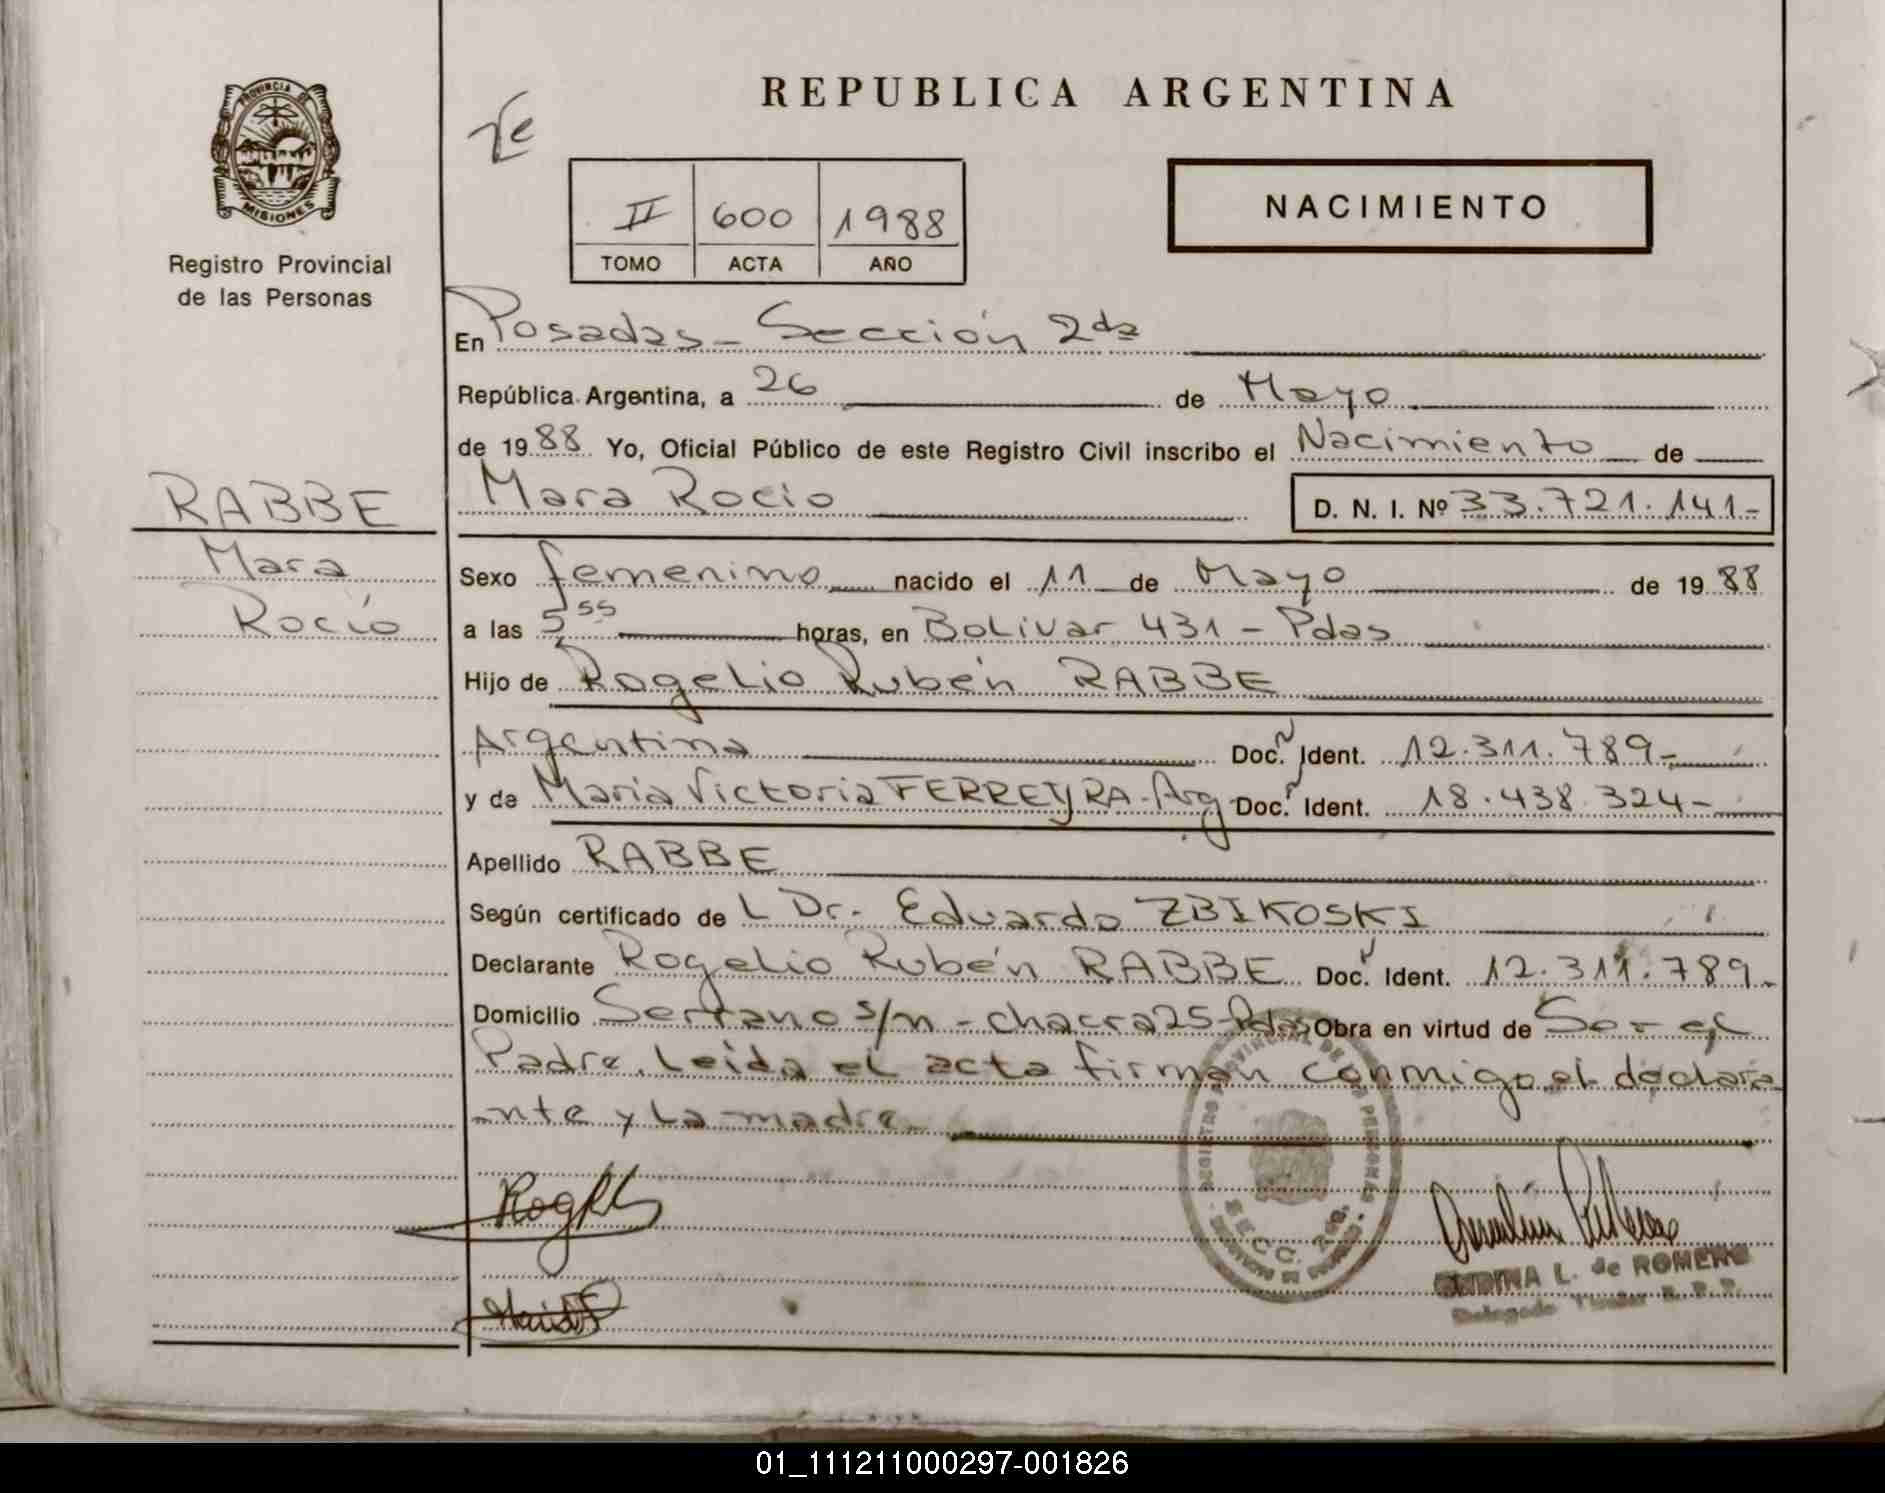 REPUBLICA ARGENTINA
PROVINCIA DE
MISIONES
Registro Provincial
de las Personas
NACIMIENTO
II 600 1988
TOMO ACTA AÑO
En Posadas - Sección 2da
República Argentina, a 26 de Mayo
de 1988 Yo, Oficial Público de este Registro Civil inscribo el Nacimiento de
RABBE
Mara Rocio D. N. I. Nº 33.721.141-
Mara
Rocío
Sexo femenino nacido el 11 de Mayo de 1988
a las 5 55 horas, en Bolivar 431 - Pdas
Hijo de Rogelio Rubén RABBE
Argentina Doc. Ident. 12.311.789-
y de Maria Victoria FERREYRA - Arg Doc. Ident. 18.438.324-
Apellido RABBE
Según certificado de L Dr. Eduardo ZBIKOSKI
Declarante Rogelio Rubén RABBE Doc. Ident. 12.311.789-
Domicilio Serrano s/n - chacra 25 - Pdas Obra en virtud de Ser el
Padre. Leída el acta firman conmigo el declara
-nte y la madre-
REGISTRO PROVINCIAL DE LAS PERSONAS
SECC. 2da.
L. de ROMERO
01_111211000297-001826